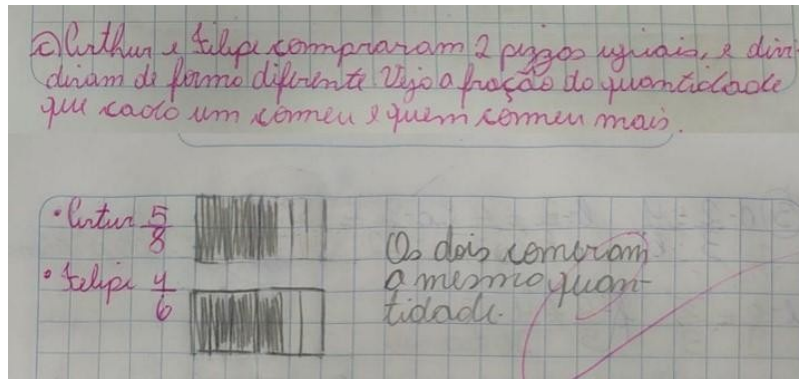 c) Arthur e Felipe compraram 2 pizzas iguais, e divi-
diram de forma diferente. Vejo a fração da quantidade
que cada um comeu e quem comeu mais.
• Artur 5/8
Os dois comeram
• Felipi 4/6
a mesma quan-
tidade.